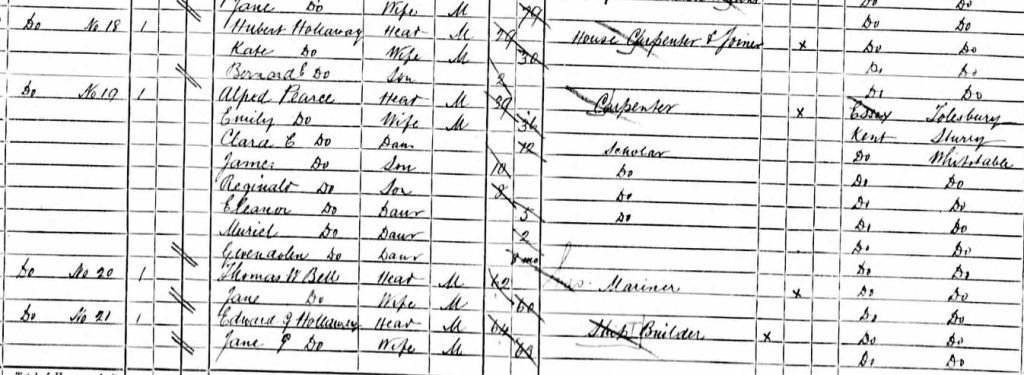 Jane Do Wife M 79 Do Do
Do No 18 1 Hubert Hollaway Head M 29 House Carpenter & Joiner x Do Do
Kate Do Wife M 30 Do Do
Bernard E Do Son 2 Do Do
Do No 19 1 Alfred Pearce Head M 39 Carpenter x Essex Tolesbury
Emily Do Wife M 36 Kent Sturry
Clara E Do Daur 12 Scholar Do Whitstable
James Do Son 10 Do Do Do
Reginald Do Son 8 Do Do Do
Eleanor Do Daur 5 Do Do Do
Muriel Do Daur 2 Do Do
Gwendolen Do Daur 8 mo Do Do
Do No 20 1 Thomas W Bell Head M 62 Mariner x Do Do
Jane Do Wife M 60 Do Do
Do No 21 1 Edward J Hollaway Head M 64 Ship Builder x Do Do
Jane P Do Wife M 63 Do Do